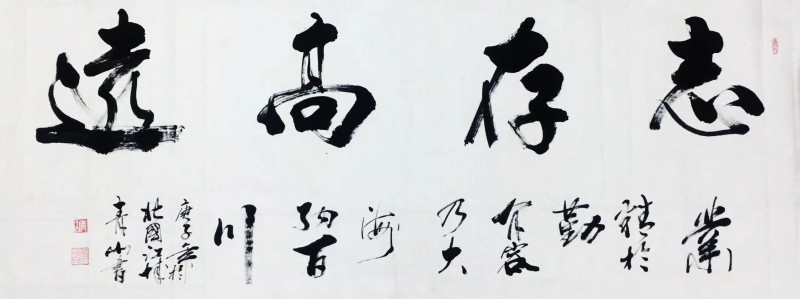 志存高遠
業
精於
勤
有容
乃大
海
納百
川
庚子
國
青山書